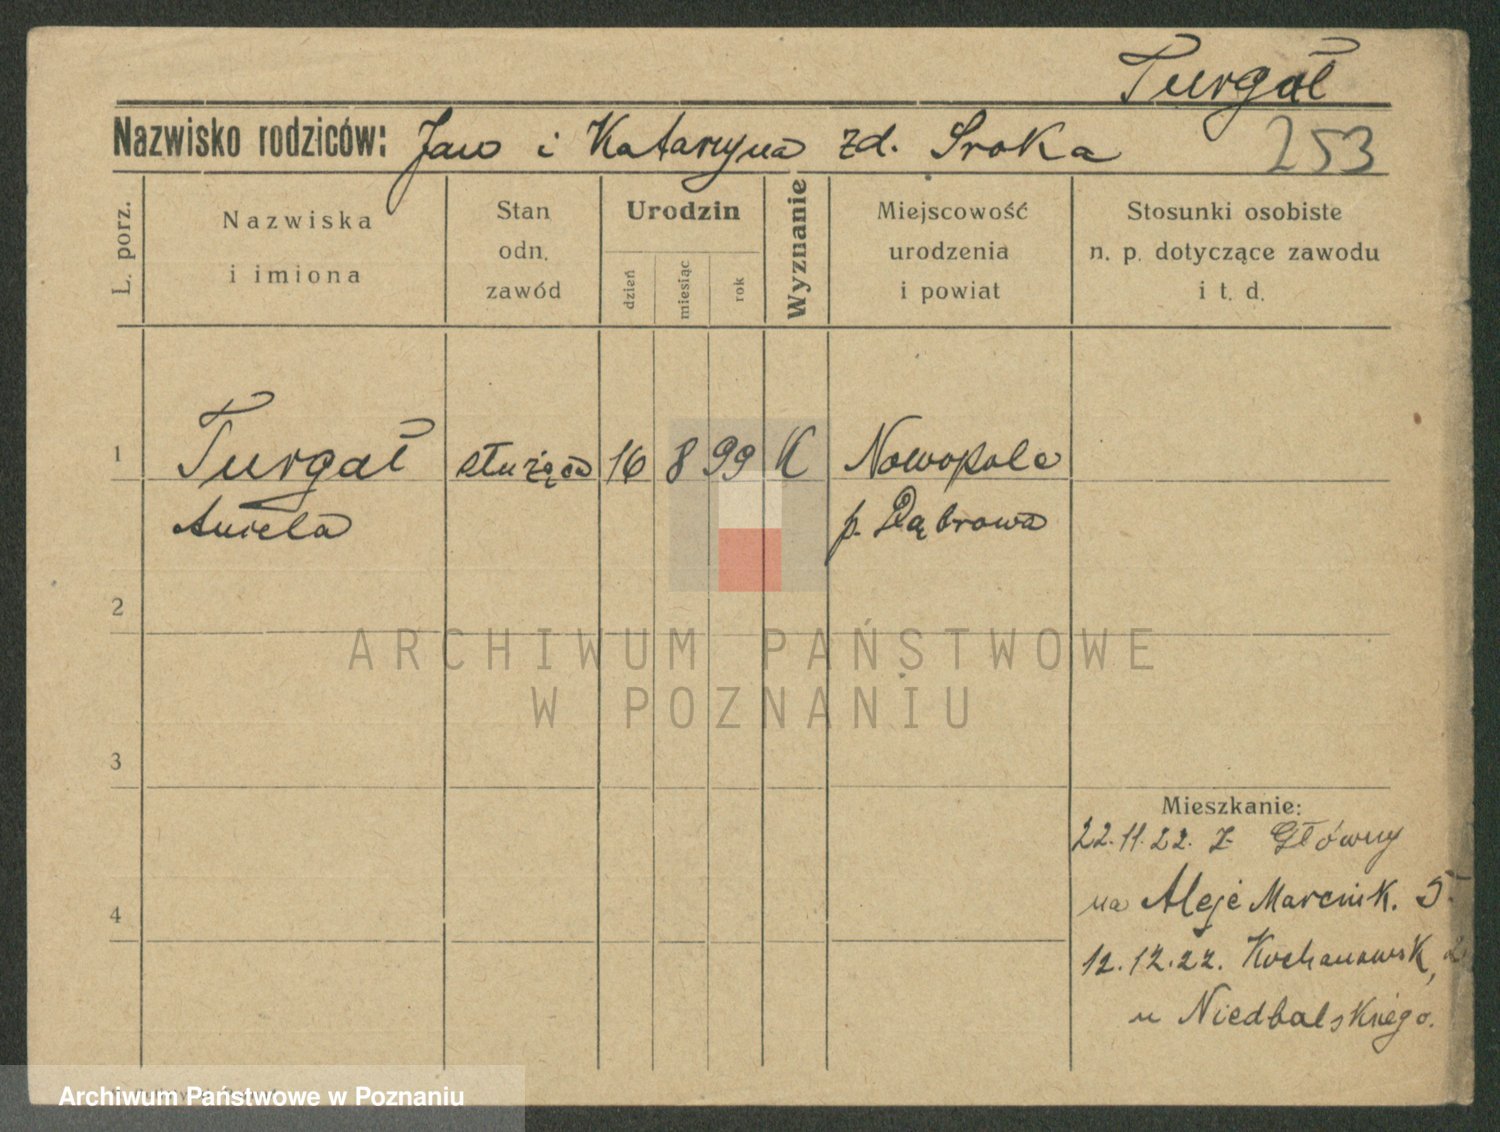 Turgał
Nazwisko rodziców: Jan i Katarzyna zd. Sroka
253
L. porz.
Nazwiska
i imiona
Stan
odn.
zawód
Urodzin
dzień
miesiąc
rok
Wyznanie
Miejscowość
urodzenia
i powiat
Stosunki osobiste
n. p. dotyczące zawodu
i t. d.
1 Turgał służąca 16 8 99 K Nowopole
Aniela p. Dąbrowa
2
ARCHIWUM PAŃSTWOWE
W POZNANIU
3
Mieszkanie:
22.11.22. z Główny
na Aleje Marcink. 5
4
12.12.22. Kochanowsk,
u Niedbalskiego.
Archiwum Państwowe w Poznaniu